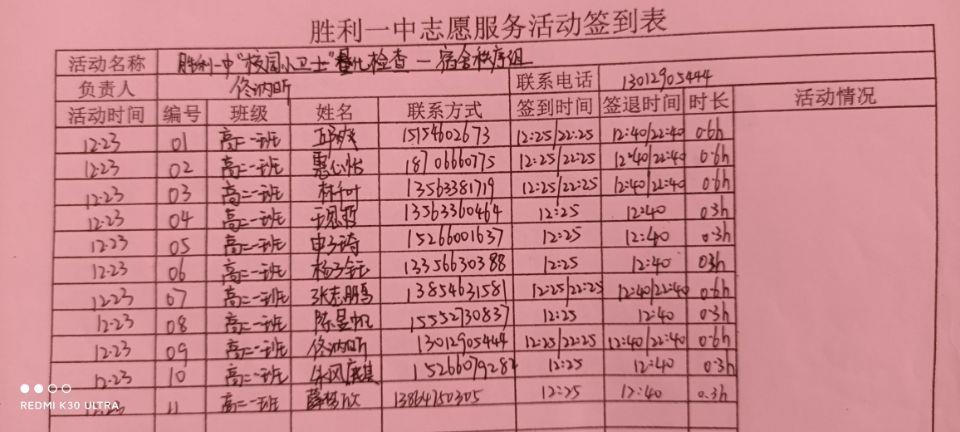 胜利一中志愿服务活动签到表
活动名称 胜利一中"校园小卫士"量化检查—宿舍秩序组
负责人 佟讷昕 联系电话 13012905444
活动时间 编号 班级 姓名 联系方式 签到时间 签退时间 时长 活动情况
12.23 01 高二一班 15154602673 12:25/22:25 12:40/22:40 0.6h
12.23 02 高二一班 惠心怡 18706660775 12:25/22:25 12:40/22:40 0.6h
12.23 03 高二一班 林千叶 13563381719 12:25/22:25 12:40/22:40 0.6h
12.23 04 高二一班 王思哲 13563360464 12:25 12:40 0.3h
12.23 05 高二一班 申子琦 15266001637 12:25 12:40 0.3h
12.23 06 高二一班 杨子钰 13356630388 12:25 12:40 0.3h
12.23 07 高二一班 张志鹏 13854631581 12:25/22:25 12:40/22:40 0.6h
12.23 08 高二一班 陈昱帆 15552730837 12:25 12:40 0.3h
12.23 09 高二一班 佟讷昕 13012905444 12:25/22:25 12:40/22:40 0.6h
12.23 10 高二一班 15266079282 12:25 12:40 0.3h
12.23 11 高二一班 13864750305 12:25 12:40 0.3h
REDMI K30 ULTRA